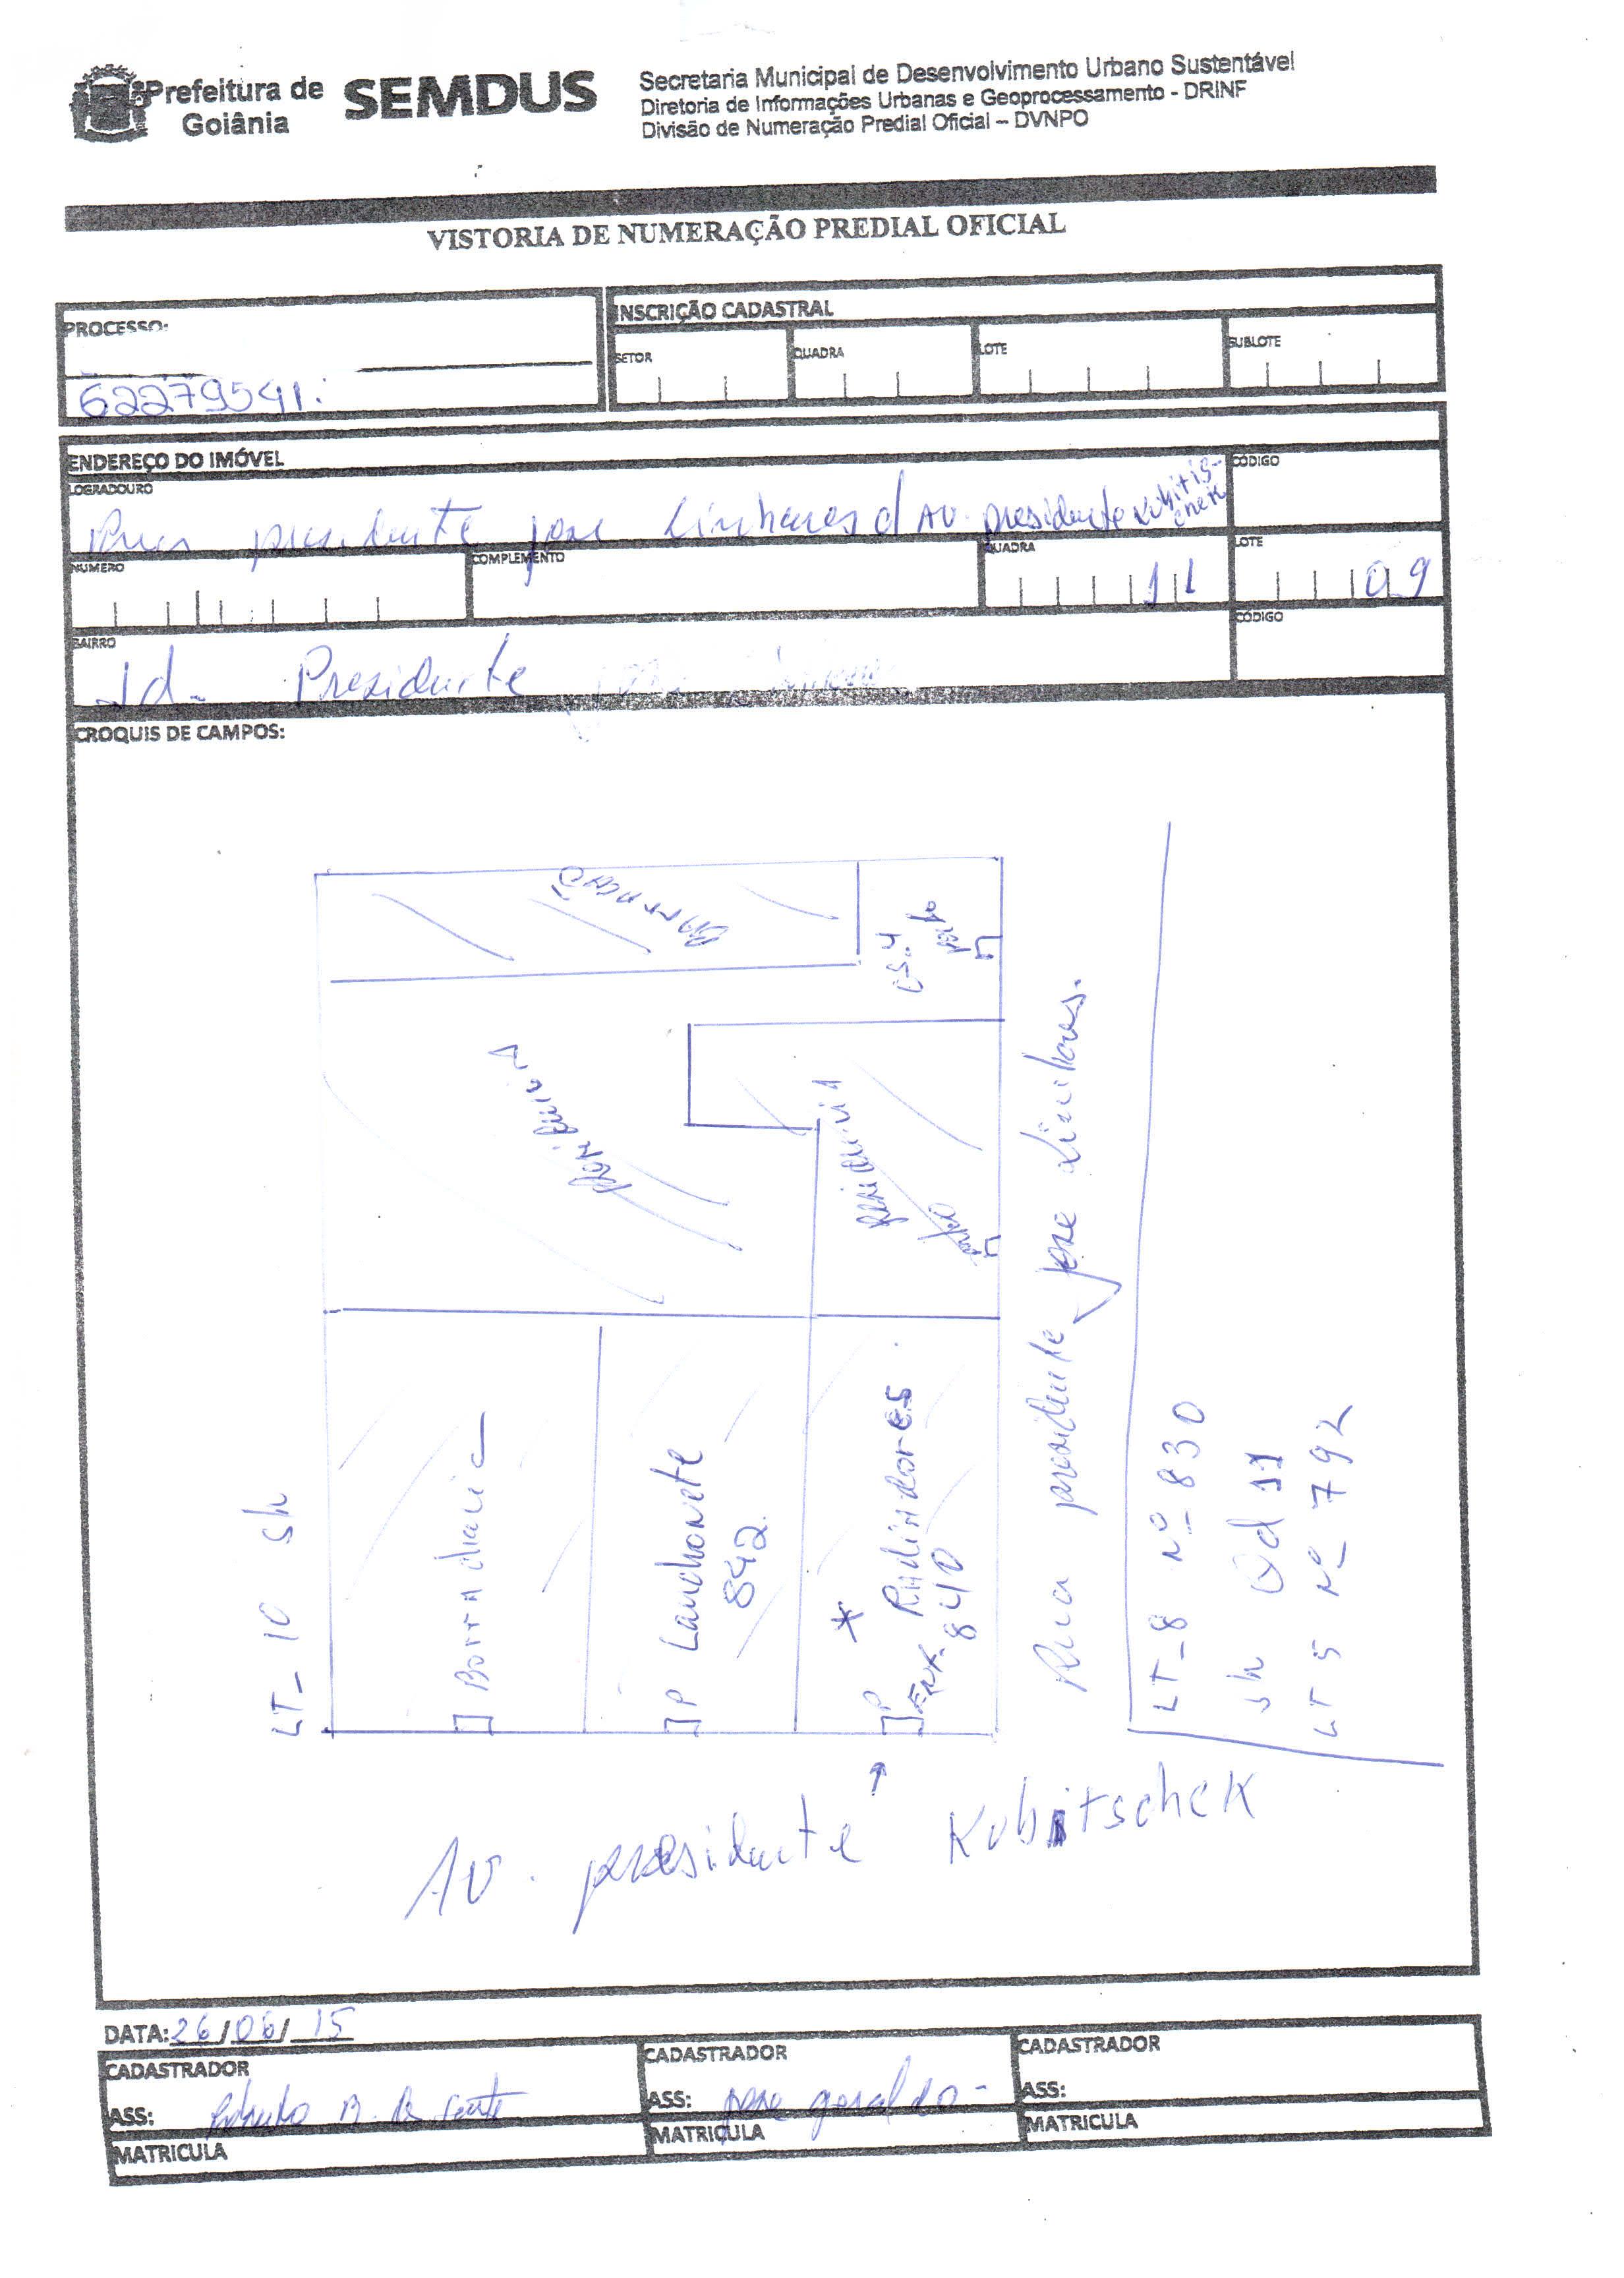 Prefeitura de Goiânia
SEMDUS
Secretaria Municipal de Desenvolvimento Urbano Sustentável
Diretoria de Informações Urbanas e Geoprocessamento - DRINF
Divisão de Numeração Predial Oficial – DVNPO
VISTORIA DE NUMERAÇÃO PREDIAL OFICIAL
PROCESSO:
62279541.
INSCRIÇÃO CADASTRAL
SETOR
QUADRA
LOTE
SUBLOTE
ENDEREÇO DO IMÓVEL
LOGRADOURO
Rua presidente jose Linhares c/ AV. presidente Kubitis-
chek
CÓDIGO
NUMERO
COMPLEMENTO
QUADRA
11
LOTE
09
BAIRRO
Jd- Presidente
CÓDIGO
CROQUIS DE CAMPOS:
Barracão
CS.4
portão
Residencia
Residencia 1
portão
Rua presidente jose Linhares.
LT_ 10 Sh
Borracharia
P Lanchonete
842
*
P Radiadores
840
LT_8 Nº 830
Sh Qd 11
LT 5 Nº 792
AV. presidente Kubitschek
DATA: 26/06/15
CADASTRADOR
ASS:
MATRICULA
CADASTRADOR
ASS: jose geraldo-
MATRICULA
CADASTRADOR
ASS:
MATRICULA